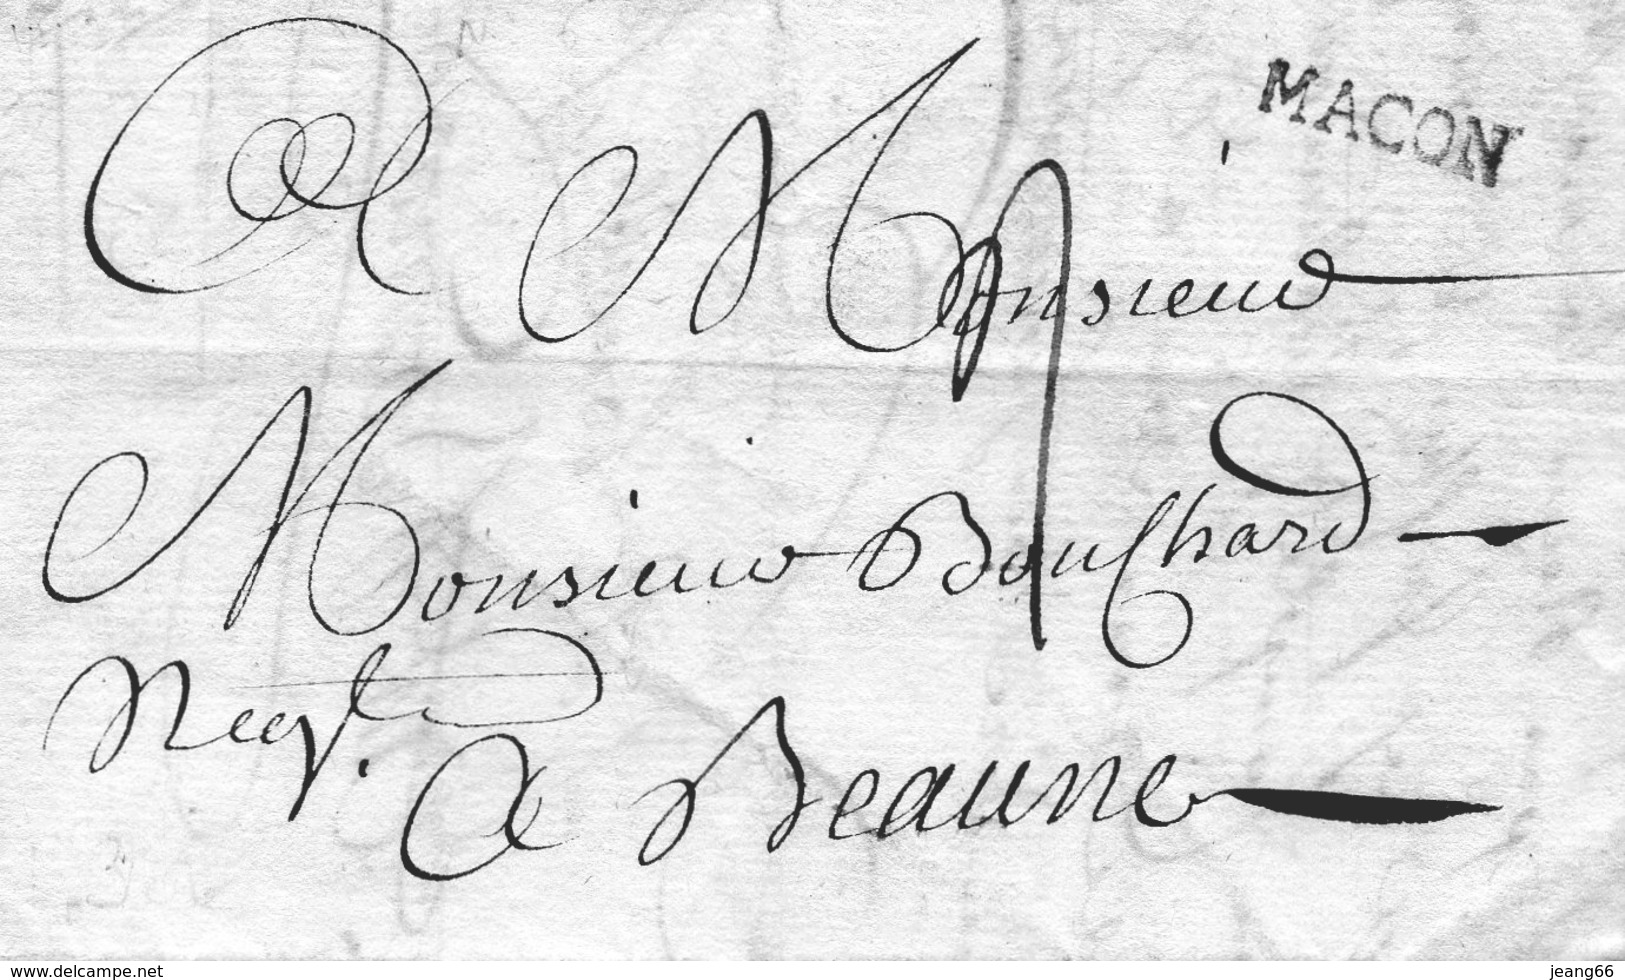 MACON
A Monsieur
Monsieur Bouchard
Negt.
A Beaune
www.delcampe.net
jeang66